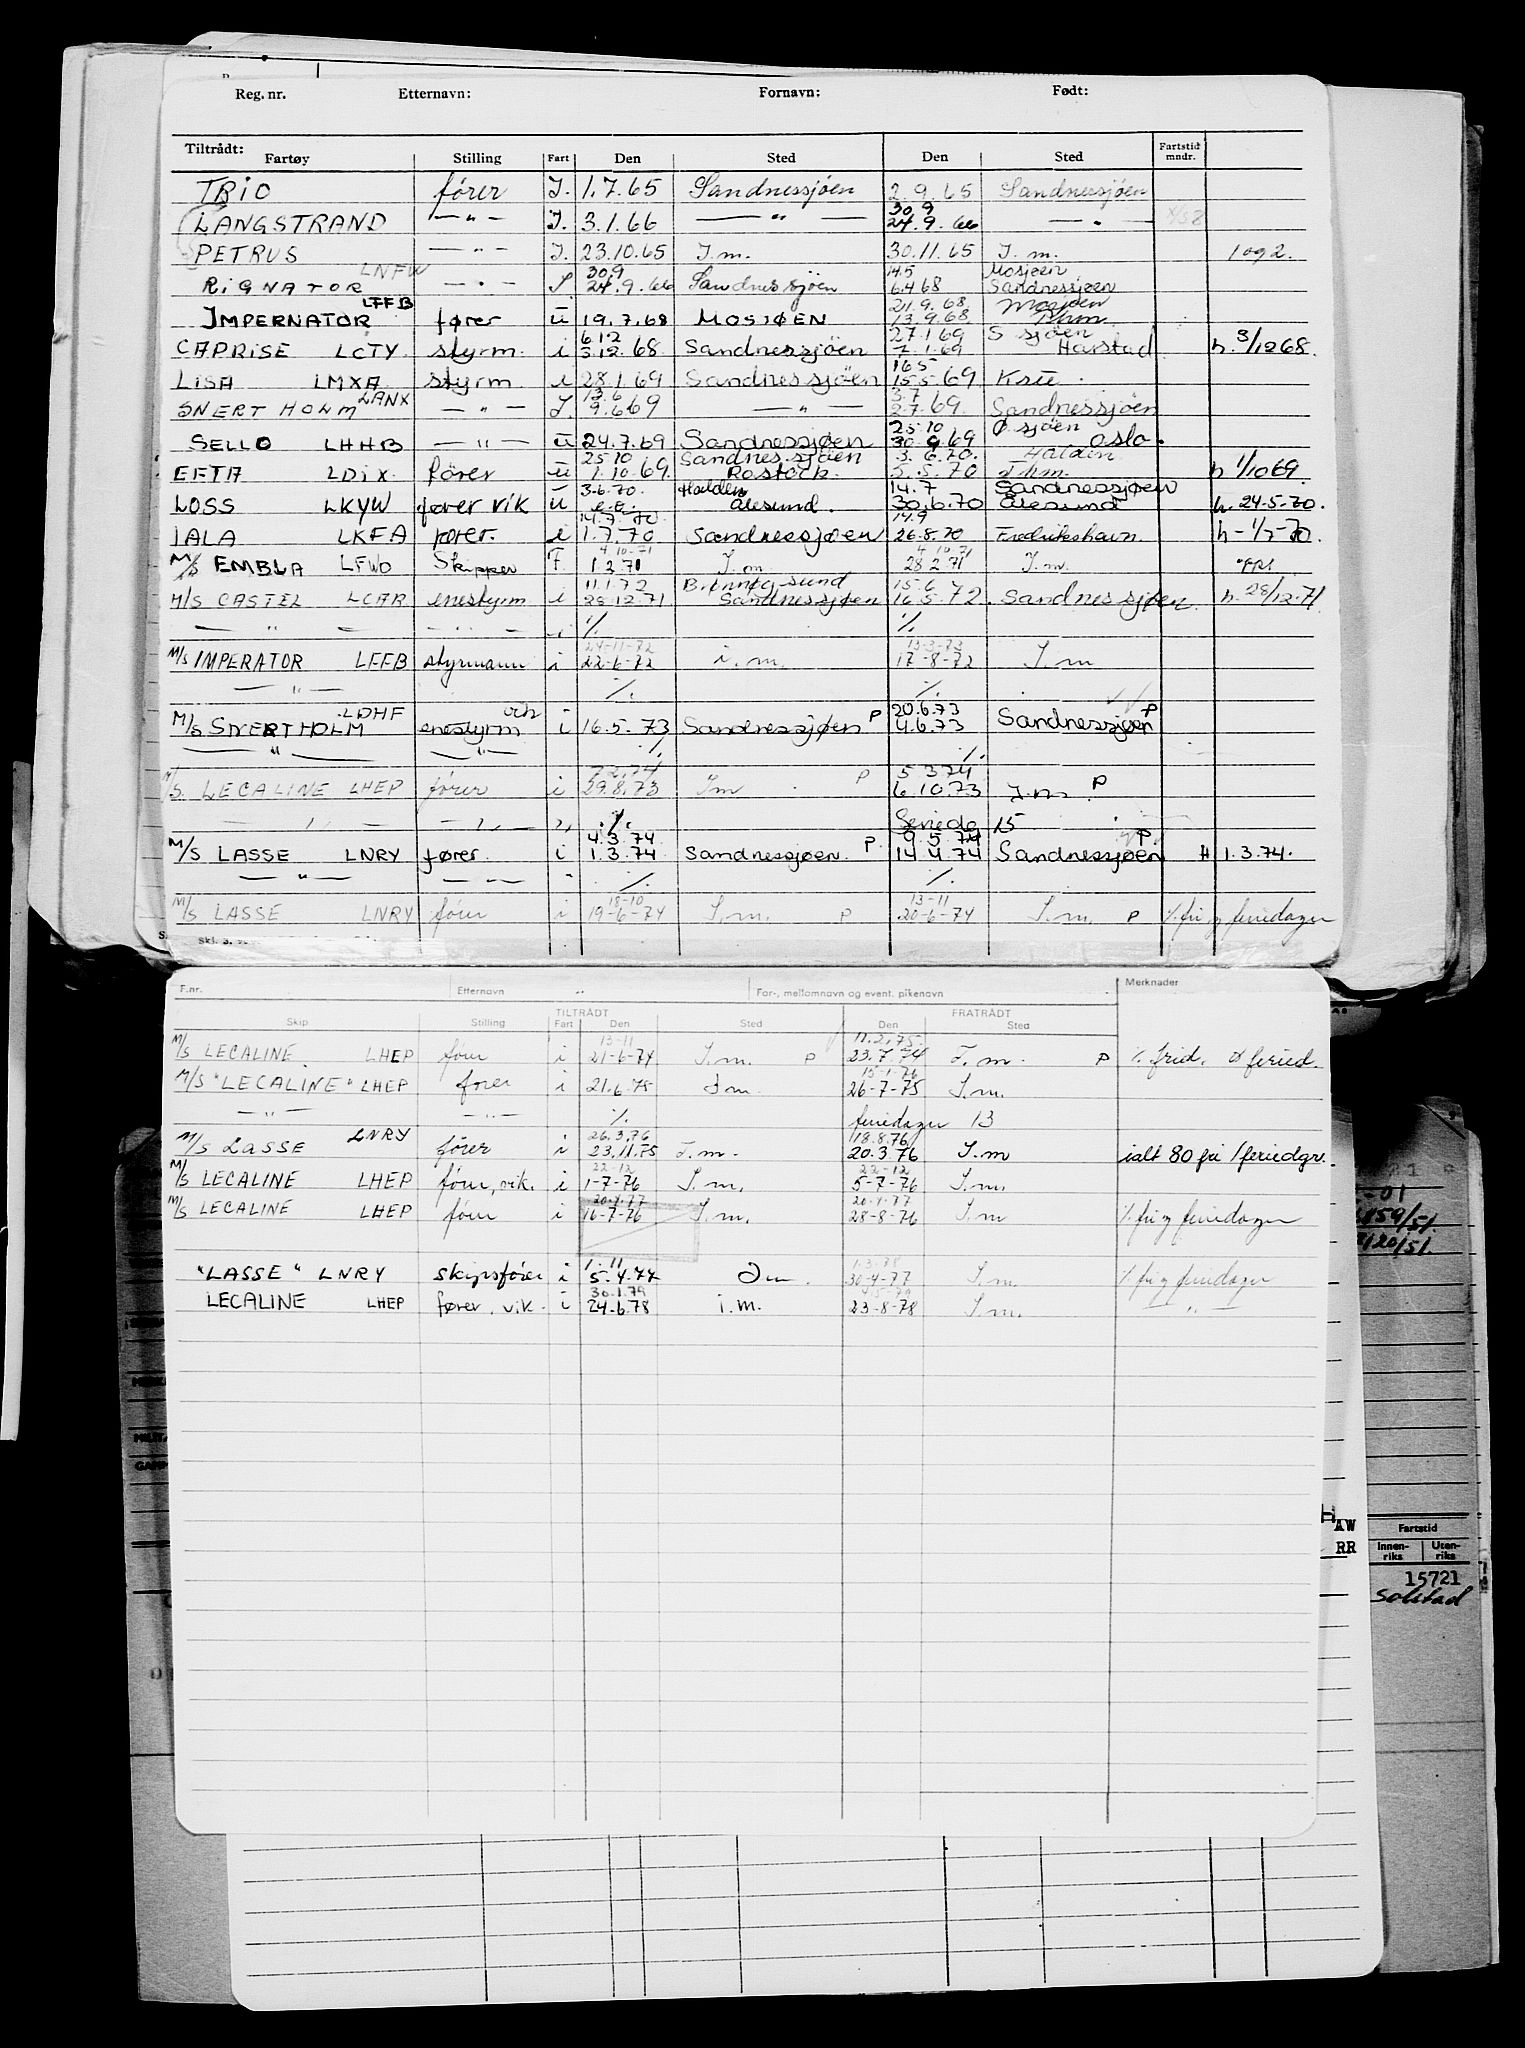 Reg. nr. Etternavn: Fornavn: Født:
Tiltrådt:
Fartøy Stilling Fart Den Sted Den Sted Fartstid mndr.
TRIO fører I. 1.7.65 Sandnessjøen 2 9 65 Sandnessjøen
30.9
LANGSTRAND — " — I. 3.1.66 — " — 24.9.66 — " —
PETRUS — " — I. 23.10.65 I.m. 30.11.65 I.m. 1 og 2.
LNFW 30.9 14.5 Mosjøen
RIGNATOR — " — 24.9.66 Sandnessjøen 6.4.68 Sandnessjøen
LFFB 21.9.68 Mosjøen
IMPERNATOR fører u 19.7.68 MOSJØEN 13.9.68
6 12 27.1 69 S sjøen
CAPRISE LCTY styrm. i 3.12.68 Sandnessjöen 7.1.69 Harstad h. 3/12 68.
16.5
LISA LMXA styrm i 28.1.69 Sandnessjøen 15.5.69
LANX 13.6 3.7
SNERTHOLM — " — I. 9.6.69 — " — 2.7.69. Sandnessjöen
25.10 Ø. sjöen
SELLO LHHB — " — u 24.7.69 Sandnessjøen 30.9.69 oslo.
25 10 Sandnessjöen 3.6.70. Halden
EFTA LDIX fører u 1.10.69. Rostock. 5.5.70 h 1/10 69.
3.6.70. Halden 14.7 Sandnessjøen
LOSS LKYW fører vik u Ålesund. 30.6.70 Ålesund h. 24.5.70.
14.7.70 14.9
IALA LKFA fører. i 1.7.70 Sandnessjøen 26.8.70 Fredrikshavn. h - 1/7-70.
4.10.71 4.10.71
M/S EMBLA LFWO Skipper F. 1 2 71 I.m 28 2 71 I.m.
11.1.72 Brønnøysund 15.6
M/S CASTEL LCAR enestyrm i 28.12.71 Sandnessjøen 16.5.72. Sandnessjøen h. 28/12.71
— " — — " — " % %
24-11-72 13-3-73
M/S IMPERATOR LFFB styrmann i 22-6-72 i.m. 17-8-72 I.m
— " — % %
LDHF vik 20.6.73
M/S SNERTHOLM enestyrm i 16.5.73 Sandnessjøen P 4.6.73 Sandnessjøen P
— " — — " — % %
5 3 74
M/S. LECALINE LHEP fører i 29.8.73 I m P 6.10.73 I.m. P
— " — — " — " % feriedg 15
4.3.74 9.5.74
M/S LASSE LNRY fører. i 1.3.74 Sandnessjøen. P 14 4.74 Sandnessjøen P H 1.3.74.
— " — — " — " % %
18-10 13-11
M/S LASSE LNRY fører i 19-6-74 I.m. P 20-6-74 I.m. P % fri og feriedager
F.nr. Etternavn For-, mellomnavn og event. pikenavn Merknader
TILTRÅDT FRATRÅDT
Skip Stilling Fart Den Sted Den Sted
13-11 11.2.75.
M/S LECALINE LHEP fører i 21-6-74 I.m. P 23.7.74 I.m. P % frid. og feried.
15-1-76
M/S "LECALINE" LHEP fører i 21.6.75 I m 26-7-75 I.m.
— " — — " — % feriedager 13
LNRY 26.3.76 18.8.76
M/S LASSE fører i 23.11.75 I.m. 20.3 76 I.m ialt 80 fri/feriedgr.
22-12 22-12
M/S LECALINE LHEP fører, vik. i 1-7-76 I.m. 5-7-76 I.m.
20.4.77 20.4.77
M/S LECALINE LHEP fører i 16-7-76 I.m. 28-8-76 I.m % fri og feriedager
1.11 1.3.78
"LASSE" LNRY skipsfører i 5.4.77 I m. 30-4-77 I.m. % fri og feriedager
30.1.79
LECALINE LHEP fører, vik. i 24.6.78 i.m. 23-8-78 I.m. — " —
AW
RR
Fartstid
Innen-riks Uten-riks
15721
Solstad